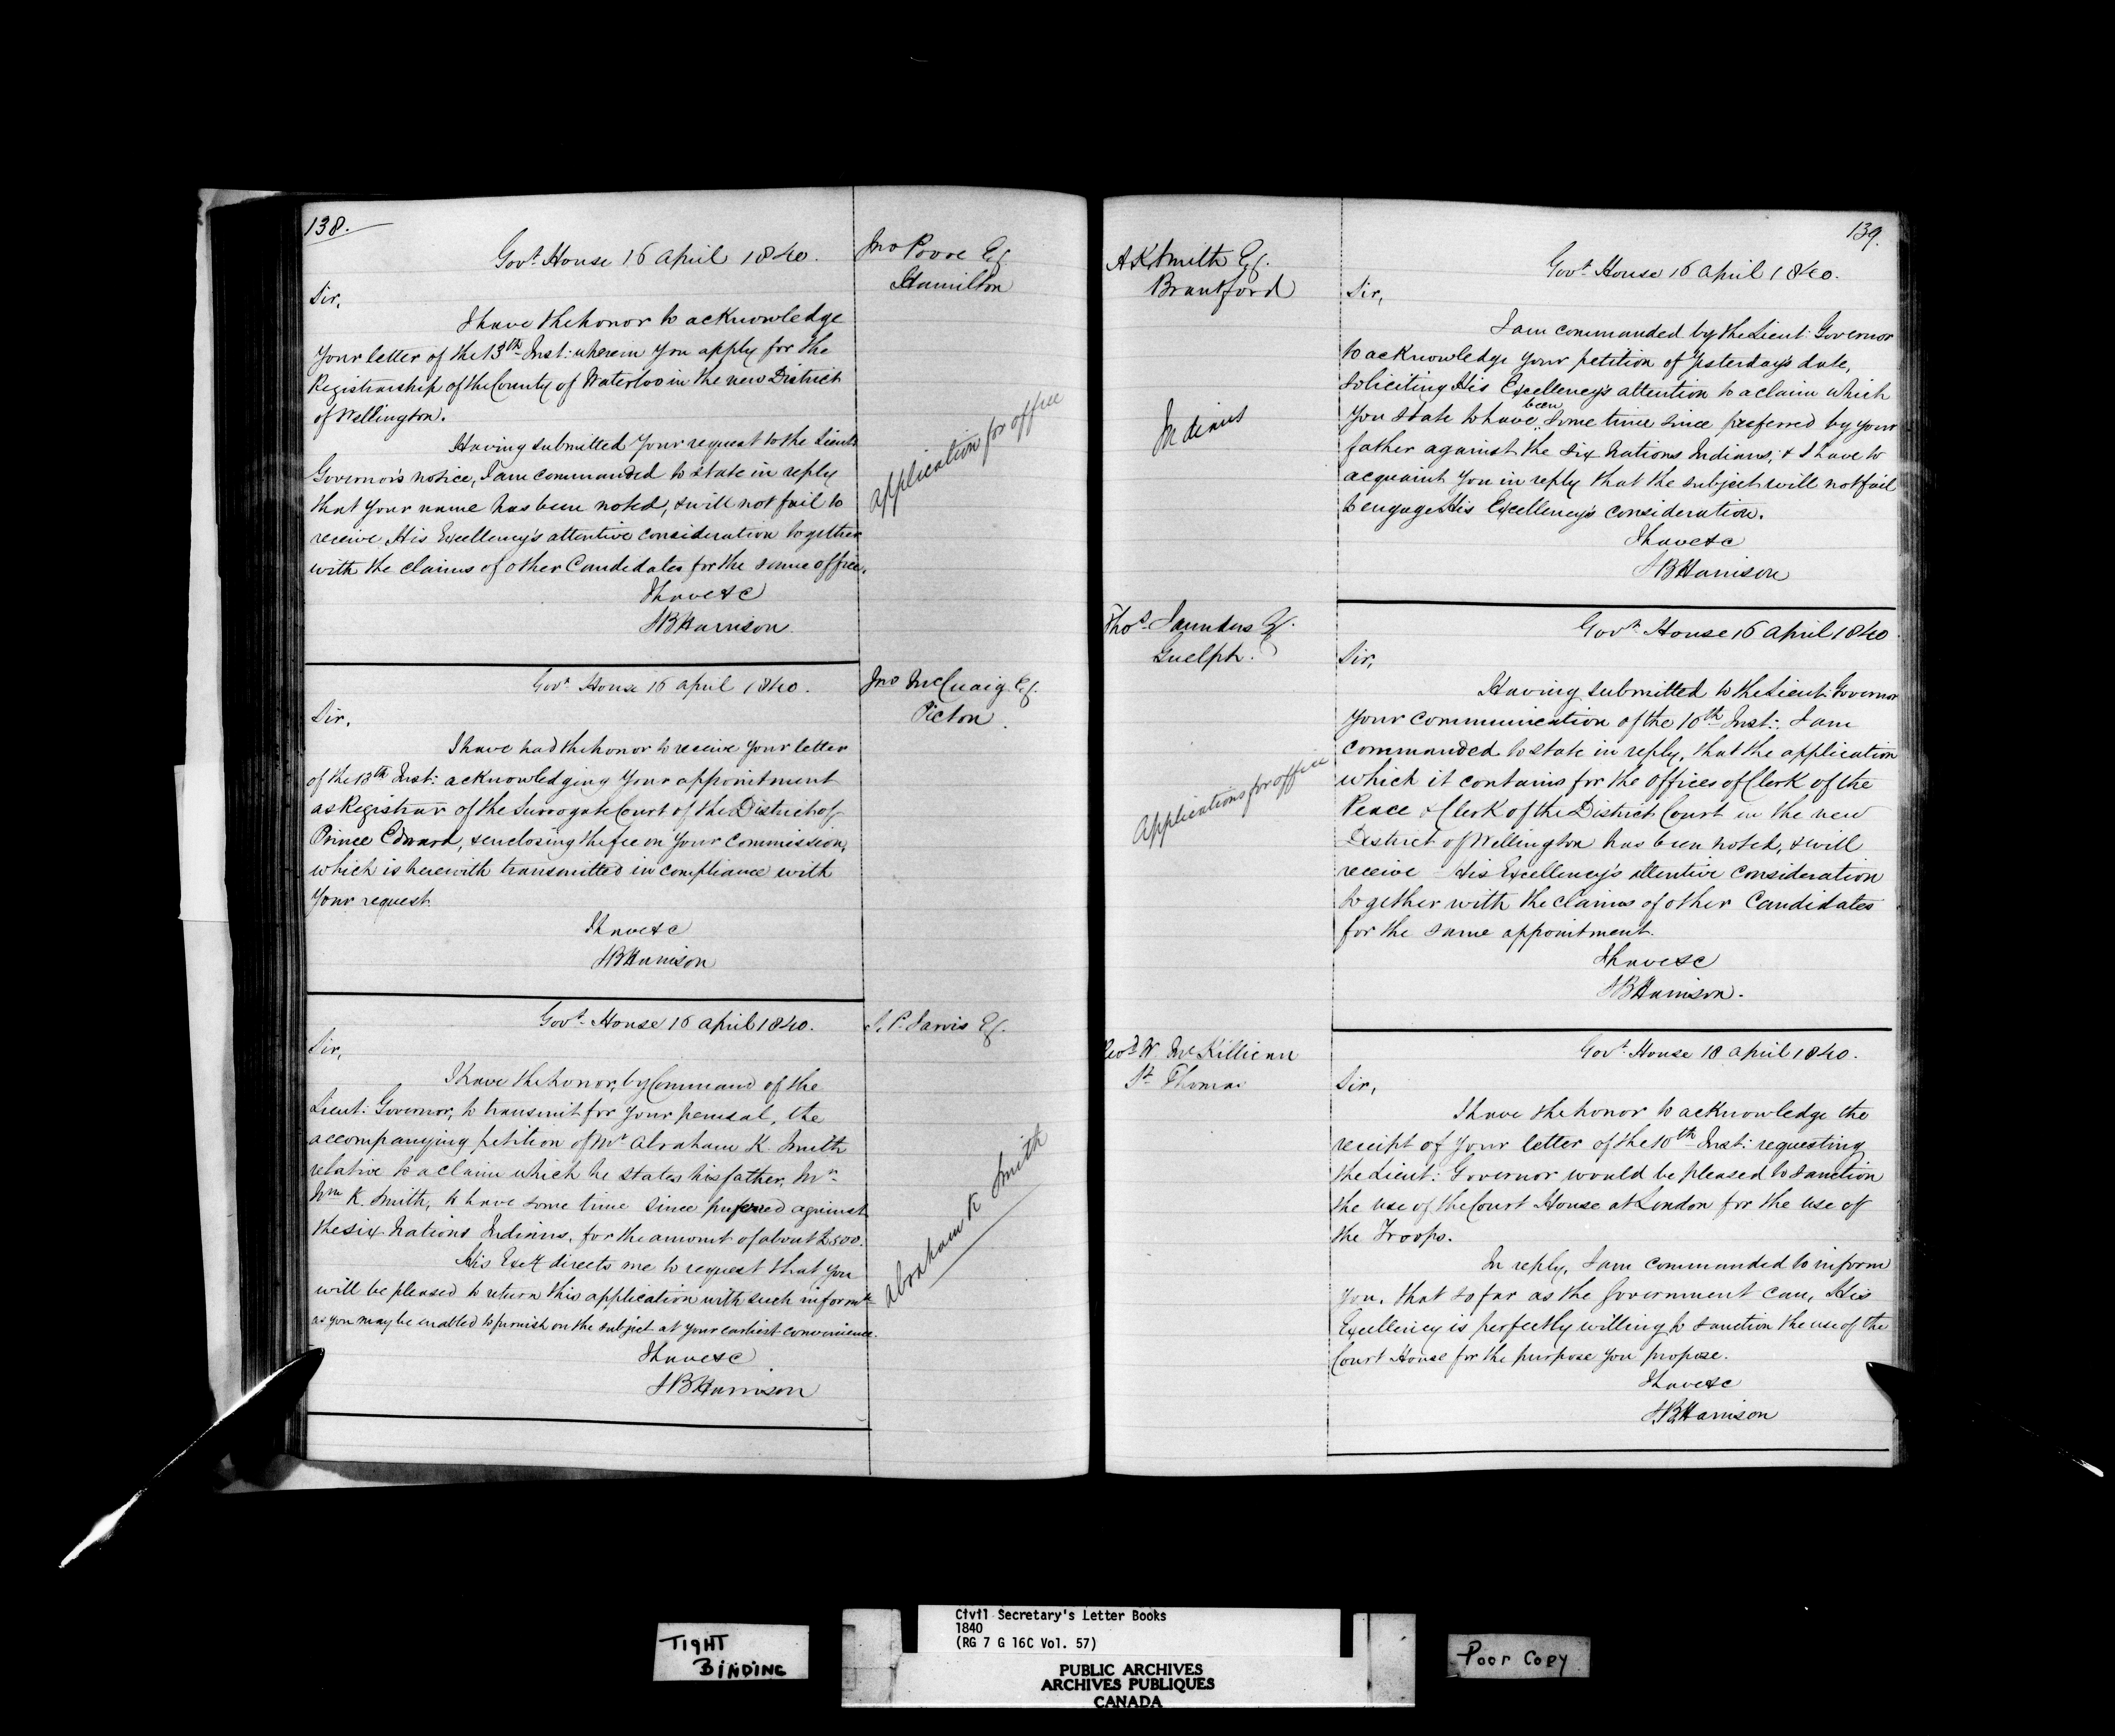 138.
Govt. House 16 April 1840.
Jno Poore Esq
Hamilton
Sir,
I have the honor to acknowledge
your letter of the 13th Inst: wherein you apply for the
Registrarship of the County of Waterloo in the new District
of Wellington.
Having submitted your request to the Lieut
Governor's notice, I am commanded to state in reply
that your name has been noted, & will not fail to
receive His Excellency's attentive consideration together
with the claims of other Candidates for the same office.
I have &c
SB Harrison
application for office
Govt. House 16 April 1840.
Jno McCuaig Esq.
Picton.
Sir,
I have had the honor to receive your letter
of the 13th Inst: acknowledging your appointment
as Registrar of the Surrogate Court of the District of
Prince Edward, & enclosing the fee on your Commission,
which is herewith transmitted in compliance with
your request.
I have &c
SB Harrison
Govt. House 16 April 1840.
S. P. Jarvis Esq.
Sir,
I have the honor, by Command of the
Lieut: Governor, to transmit for your perusal, the
accompanying petition of Mr Abraham K. Smith
relative to a claim which he states his father, Mr
Wm K. Smith, to have some time since preferred against
the six Nations Indians, for the amount of about £500.
His Excy directs me to request that you
will be pleased to return this application with such informn
as you may be enabled to furnish on the subject at your earliest convenience.
I have &c
SB Harrison
Abraham K Smith
139.
A K Smith Esq.
Brantford
Govt. House 16 April 1840.
Sir,
I am commanded by the Lieut: Governor
to acknowledge your petition of Yesterday's date,
soliciting His Excellency's attention to a claim which
you state to have been some time since preferred by your
father against the six Nations Indians; & I have to
acquaint you in reply that the subject will not fail
to engage His Excellency's consideration.
I have &c
SB Harrison
Indians
Thos. Saunders Esq.
Guelph.
Govt. House 16 April 1840
Sir,
Having submitted to the Lieut: Governor
your communication of the 10th Inst: I am
commanded to state in reply, that the application
which it contains for the offices of Clerk of the
Peace & Clerk of the District Court in the new
District of Wellington has been noted, & will
receive His Excellency's attentive consideration
together with the claims of other Candidates
for the same appointment.
I have &c
SB Harrison.
Applications for office
Revd W. McKillican
St. Thomas
Govt. House 18 April 1840.
Sir,
I have the honor to acknowledge the
receipt of your letter of the 10th Inst: requesting
the Lieut: Governor would be pleased to sanction
the use of the Court House at London for the use of
the Troops.
In reply, I am commanded to inform
you, that so far as the Government can, His
Excellency is perfectly willing to sanction the use of the
Court House for the purpose you propose.
I have &c
S.B. Harrison
TIGHT
BINDING
Civil Secretary's Letter Books
1840
(RG 7 G 16C Vol. 57)
PUBLIC ARCHIVES
ARCHIVES PUBLIQUES
CANADA
Poor Copy